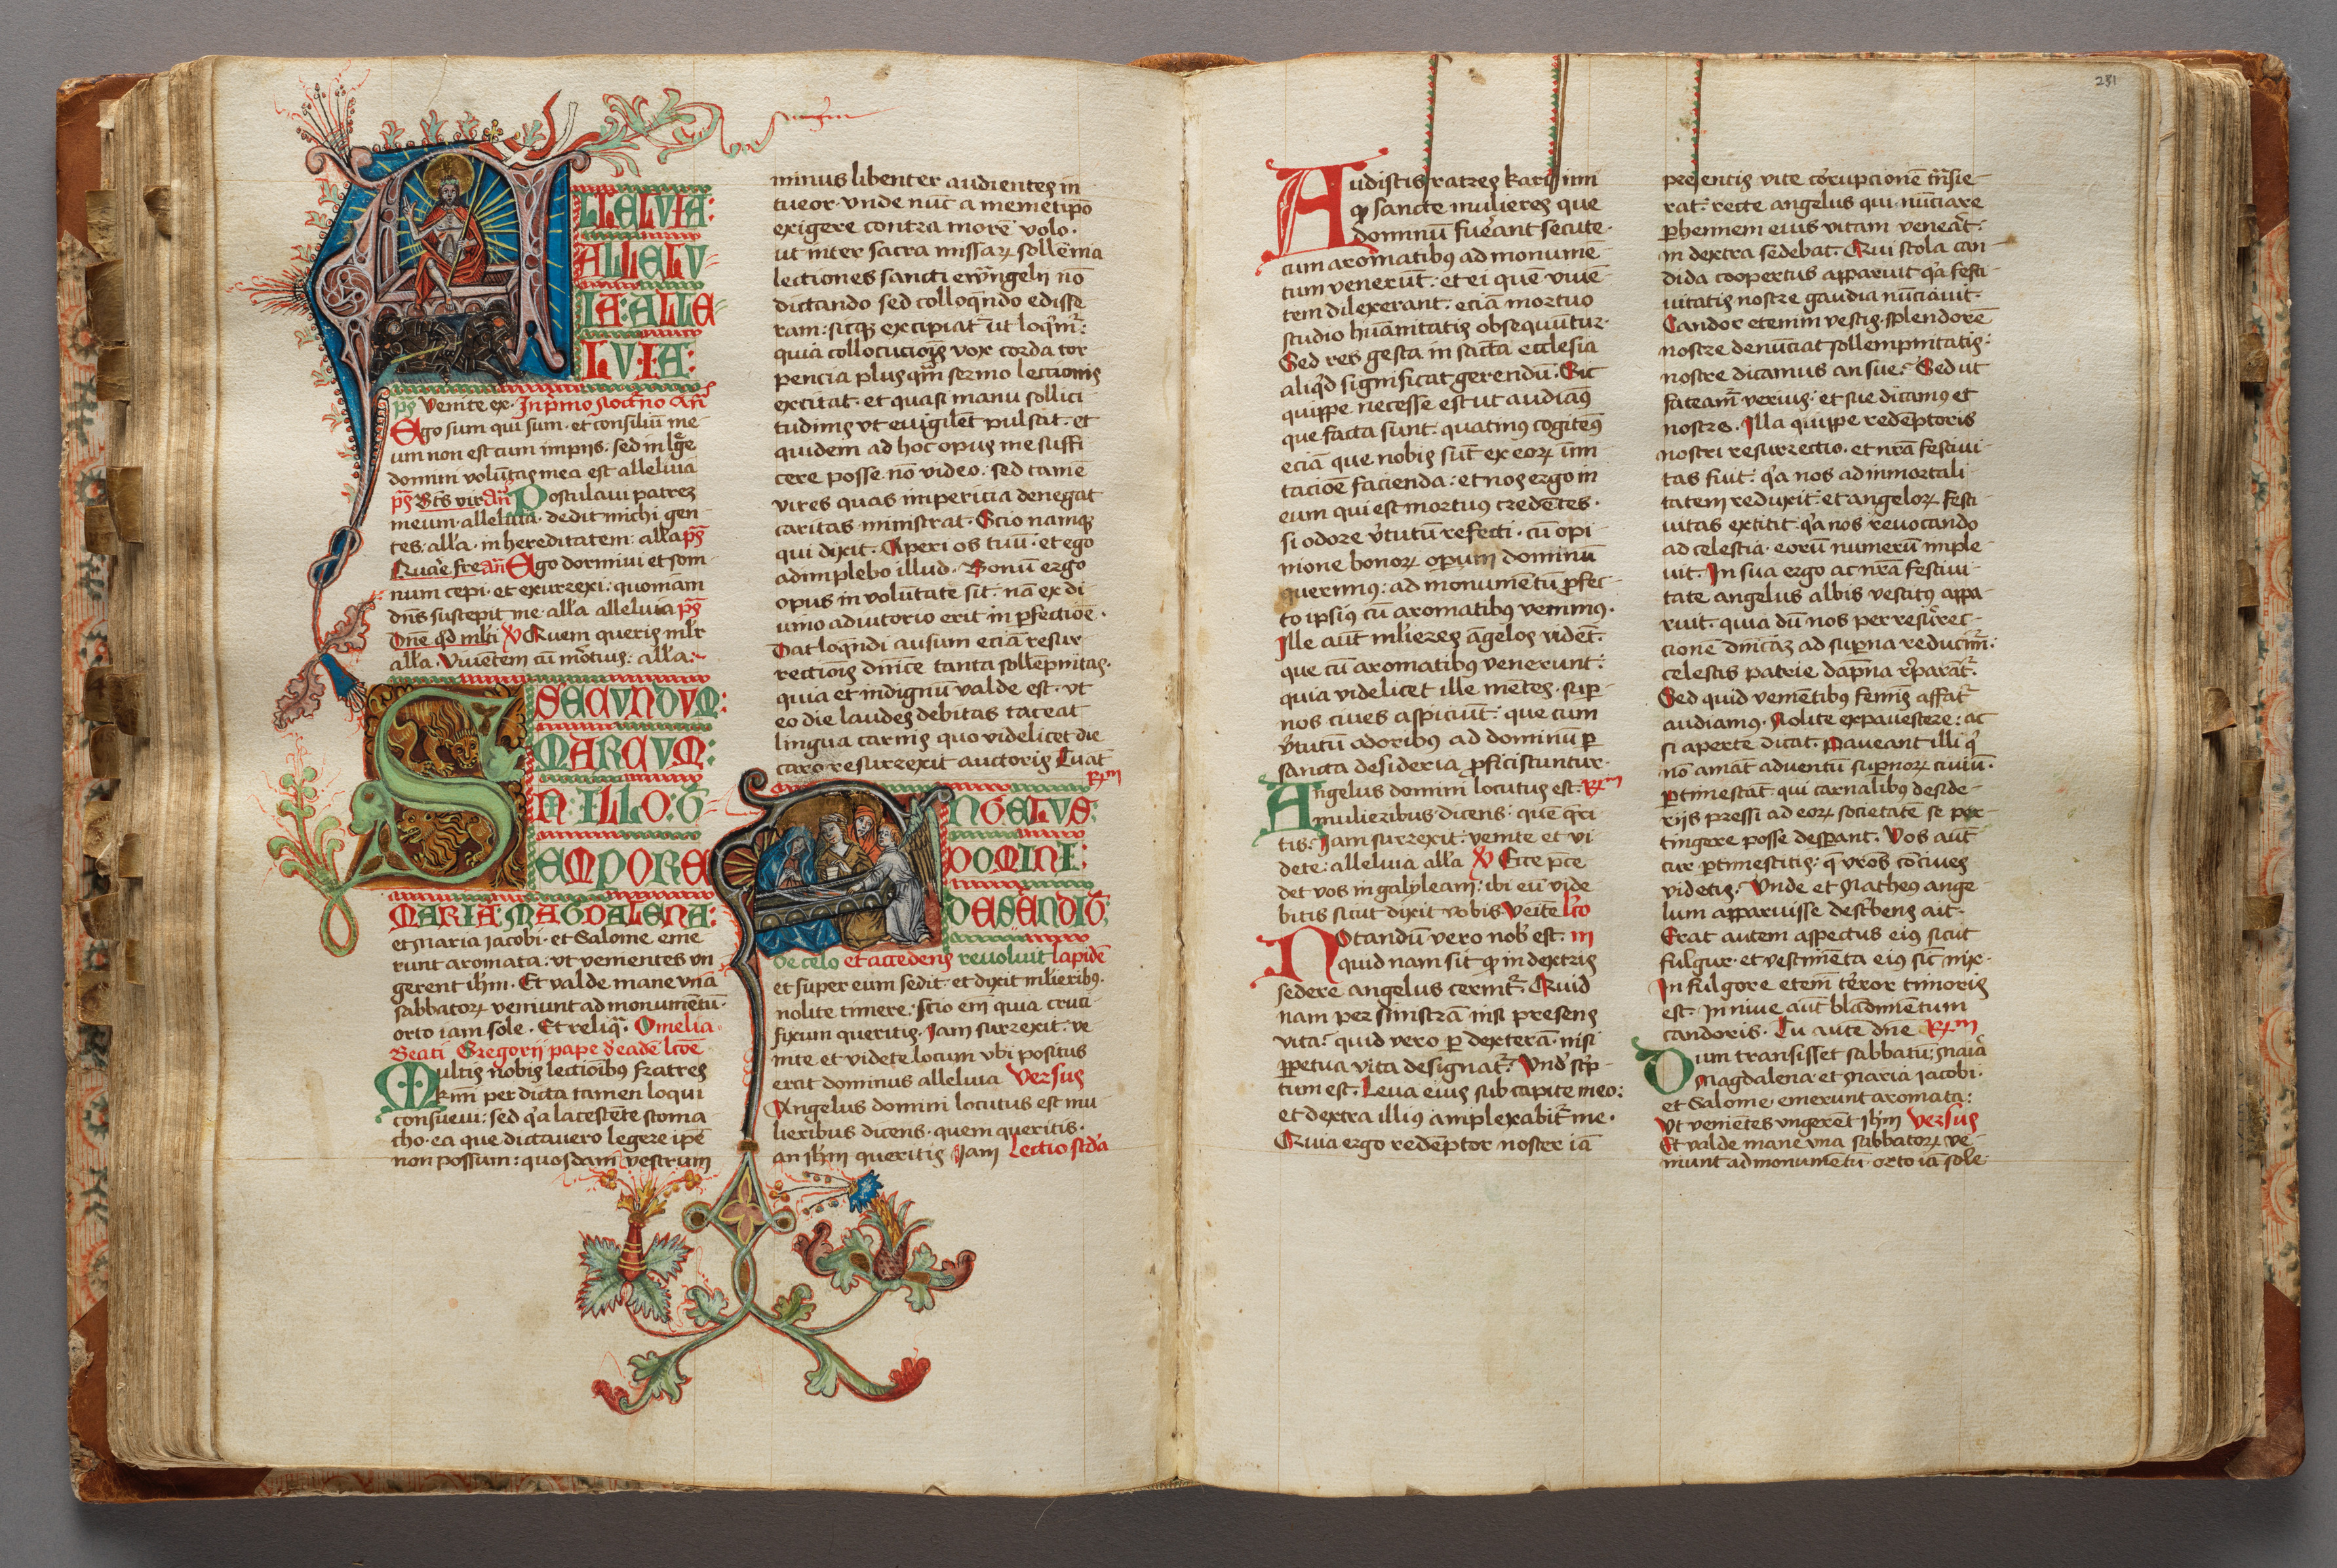 ALLELVIA:
ALLELV
IA: ALLE
LVIA:
ps̄ Venite ex. In p̄mo Noct̄no añ
Ego sum qui sum. et consiliū me
um non est cum impijs. sed in lege
domini volūtas mea est alleluia
ps̄ Bt̄s vir añ Postulaui patrez
meum. alleluia. dedit michi gen
tes. all'a. in hereditatem: all'a ps̄
Quare fre añ Ego dormiui et som
num cepi. et exurrexi: quoniam
dn̄s suscepit me. all'a alleluia ps̄
Dn̄e q̄d ml'ti V̄ Quem queris ml'r
all'a. Viuentem cū mōtuis: all'a:
SECVNDVM:
MARCVM:
IN: ILLO: T̄
EMPORE
MARIA: MAGDALENA:
et Maria Jacobi. et Salome eme
runt aromata: vt venientes vn
gerent ih̄m. Et valde mane vna
sabbatoꝝ veniunt ad monumētū.
orto iam sole. Et reliq̄. Omelia
Beati Gregorij pape d'eadē lcōe
Multis nobis lectioībꝰ fratres
kr̄mi per dicta tamen loqui
consueui: sed q'a lacescēte stoma
cho. ea que dictauero legere ip̄e
non possum: quosdam vestrum
minus libenter audientes in
tueor. vnde nūc a memetip̄o
exigere contra morē volo.
ut inter sacra missaꝝ sollēnia
lectiones sancti ewāngelij nō
dictando sed colloq̄ndo edisse
ram: sicqꝫ excipiat̄ ut loq̄m̄:
quia collocucioīs vox corda tor
pencia plus q̄m sermo lectionis
excitat. et quasi manu sollici
tudinis vt euigilēt pulsat. et
quidem ad hoc opus me suffi
cere posse nō video. sed tamē
vires quas impericia denegat
caritas ministrat. Scio namqꝫ
qui dixit. Aperi os tuū. et ego
adimplebo illud. Bonū ergo
opus in volūtate sit. nā ex di
uino adiutorio erit in ꝑfectiōe.
Dat loq̄ndi ausum eciā resur
rectiōis dn̄ice tanta sollēpnitas.
quia et indignū valde est. vt
eo die laudes debitas taceat
lingua carnis quo videlicet die
caro resurrexit auctoris Tu aūt
R̄m
ANGELVS:
DOMINI:
DESENDIT̄
de celo et accedens reuoluit lapidē
et super eum sedit. et dixit ml'ieribꝰ.
nolite timere: scio em̄ quia cruci
fixum queritis. Jam surrexit. ve
nite et videte locum vbi positus
erat dominus alleluia Versus
Angelus domini locutus est mu
lieribus dicens. quem queritis.
an ih̄m queritis Jam Lectio scd'a
281
Audistis fratres karissimi
ꝙ sancte mulieres que
dominū fuerant secute.
cum aromatibus ad monumē
tum venerūt. et ei quē viuē
tem dilexerant. eciā mortuo
studio hūanitatis obsequūtur.
Sed res gesta in sācta ecclesia
aliq̄d significat gerendū. Sic
quippe necesse est ut audiāꝰ
que facta sunt. quatinꝰ cogitēꝰ
eciā que nobis sūt ex eoꝝ imi
tacioē facienda: et nos ergo in
eum qui est mortuꝰ credētes.
si odore v̄tutū refecti. cū opi
nione bonoꝝ opum dominū
querimꝰ: ad monumētū ꝓfec
to ipsiꝰ cū aromatibꝰ venimꝰ.
Ille aūt ml'ieres āgelos vidēt.
que cū aromatibꝰ venerunt:
quia videlicet ille mētes. sup
nos ciues aspiciūt: que cum
v̄tutū odoribꝰ ad dominū ꝑ
sancta desideria ꝓficiscuntur.
Angelus domini locutus est. R̄m
mulieribus dicens. quē q̄ri
tis. Jam surrexit. venite et vi
dete: alleluia all'a V̄ Ecce p̄ce
det vos in galyleam: ibi eū vide
bitis sicut dixit vobis Veīte Lc̄o
Notandū vero nob' est. III
quid nam sit ꝙ in dextris
sedere angelus cernit̄. Quid
nam per sinistrā nisi presens
vita: quid vero ꝑ dexterā. nisi
ꝑpetua vita designat̄. Vnd' sc'p
tum est. Leua eius sub capite meo:
et dextra illiꝰ amplexabit̄ me.
Quia ergo redēptor noster iā
presentis vite corupcionē trāsie
rat: recte angelus qui nūciare
ꝑhennem eius vitam venerat.
in dextra sedebat. Qui stola can
dida coopertus apparuit q'a festi
uitatis nostre gaudia nūciauit.
Candor etenim vestis. splendorē
nostre denūciat sollempnitatis:
nostre dicamus an sue: Sed ut
fateam̄ verius. et sue dicamꝰ et
nostre. Illa quippe redēptoris
nostri resurrectio. et nrā festiui
tas fuit. q'a nos ad inmortali
tatem reduxit: et angeloꝝ festi
uitas extitit. q'a nos reuocando
ad celestia. eorū numerū imple
uit. In sua ergo ac nrā festiui
tate angelus albis vestitꝰ appa
ruit. quia dū nos per resurrec
cionē dn̄icaꝫ ad superna reducim̄:
celestis patrie dāpna r̄parāt̄.
Sed quid veniētibꝰ femīs affat̄
audiamꝰ. Nolite expauescere: ac
si aperte dicat. Paueant illi q'
nō amāt aduentū supnoꝝ ciuiū.
ꝑtimescāt. qui carnalibꝰ deside
rijs pressi ad eoꝝ societatē se per
tingere posse despant. Vos aūt
cur ꝑtimescitis: q̄ vr̄os cōciues
videtis. Vnde et Matheꝰ ange
lum apparuisse desc'bens ait.
Erat autem aspectus eiꝰ sicut
fulgur. et vestimēta eiꝰ sic̄ nix.
In fulgore etem̄ terror timoris
est. In niue aūt blādimentum
candoris. Tu autē dn̄e R̄m
Dum transisset sabbatū: Maria
Magdalena et Maria Jacobi.
et Salome emerunt aromata:
Vt veniētes vngerēt ih̄m Versus
Et valde mane vna sabbatoꝝ ve
niunt ad monumētū. orto iā sole